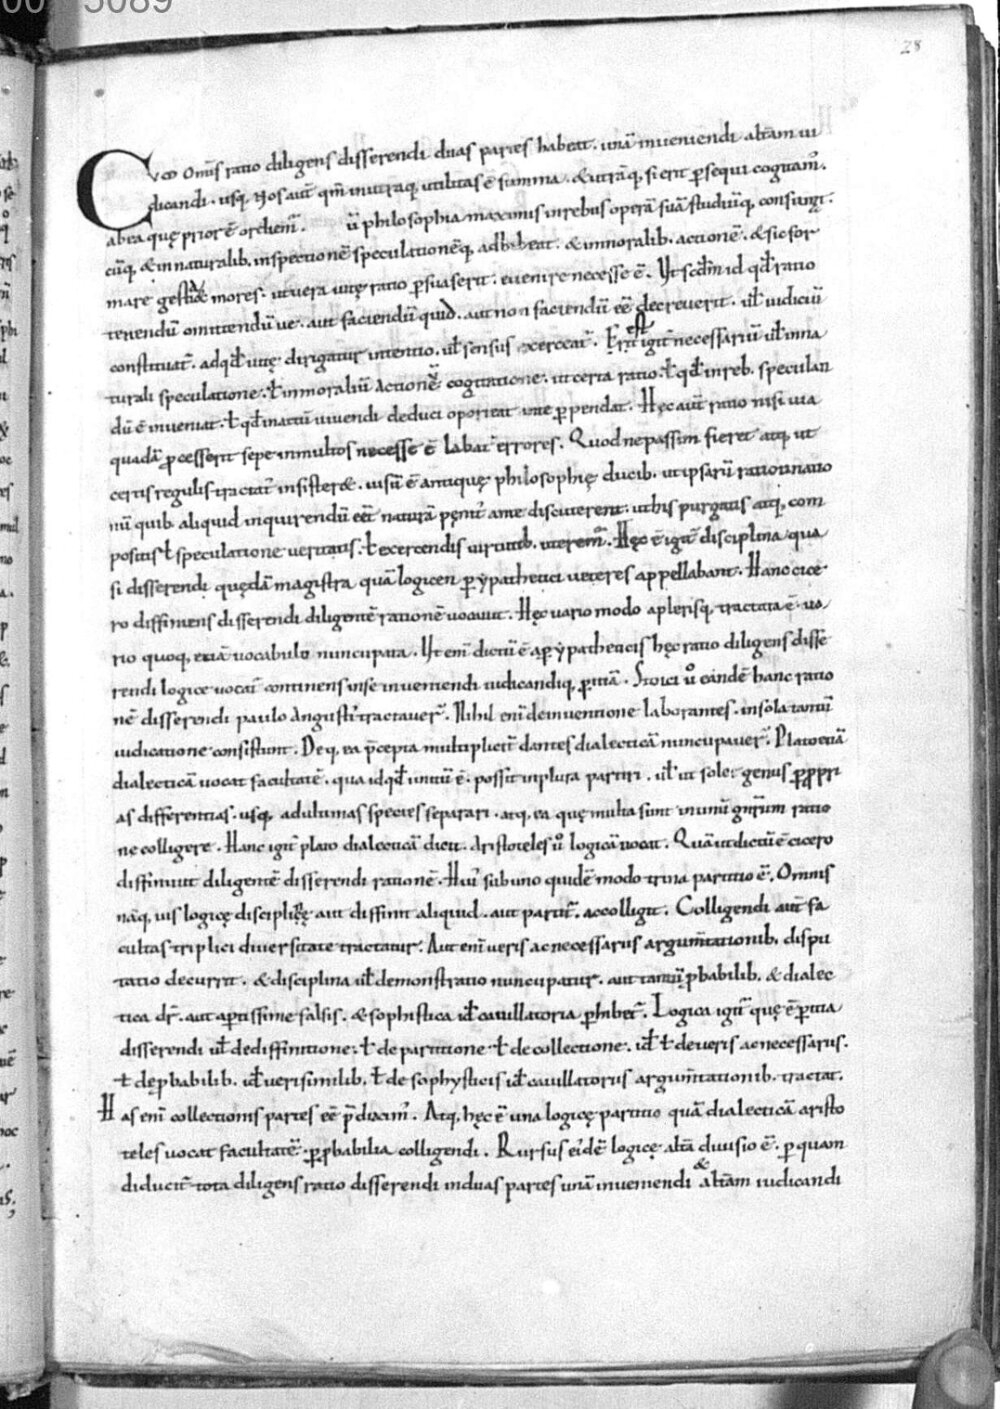 28
Cum om̄s ratio diligens disserendi duas partes habeat. unā inveniendi altam iu
dicandi. usq, Nos aut̄ qm̄ in utraq, utilitas ē summa. & utrāq, si erit ꝑsequi cogitam᷒.
ab ea quę prior ē ordiem̄. ū philosophia maximis in rebus operā suā studiūq, consum̄.
cūq, & in naturalib. inspectionē speculationēq, adhibeat. & in moralib. actionē. & sic for
mare gestiat mores. ut vera vitę ratio ꝑsuaserit. evenire necesse ē. Ut scd̄m id qđ ratio
tenendū omittendū ve. aut faciendū quid. aut non faciendū eē decreverit. uł iudiciū
constituat᷒. ad qđ vitę dirigatur intentio. uł sensus exerceat᷒. Erit est igit᷒ necessariū uł in na
turali speculatione. ł in moraliū actionē cogitatione. ut certa ratio. ł qđ in reb. speculan
dū ē inveniat. ł qđ in actū vivendi deduci oporteat ante ꝑpendat. Hęc aut̄ ratio nisi via
quadā ꝓcesserit sepe in multos necesse ē labat᷒ errores. Quod ne passim fieret atq, ut
certis regulis tractat᷒ insistere. visū ē antiquę philosophię ducib. ut ipsarū ratiotinatio
nū quib. aliquid inquirendū eēt naturā pęnit᷒ ante discuterent. ut his purgatis atq, com
positis ł speculatione veritatis. ł exercendis virtutib. uterem᷒. Hęc ē igit᷒ disciplina qua
si disserendi quędā magistra quā logicen ꝑypathetici veteres appellabant. Hanc cice
ro diffiniens disserendi diligentē rationē vocavit. Hęc vario modo a plerisq, tractata ē. va
rio quoq, etiā vocabulo nuncupata. Ut eni dictū ē a ꝑypatheticis hęc ratio diligens disse
rendi logice vocat᷒ continens in se inveniendi iudicandiq, ꝑitiā. Stoici ů eandē hanc ratio
nē disserendi paulo angusti᷒ tractaver᷒. Nihil eni de inventione laborantes. in sola tantū
iudicatione consistunt. De q, ea p̄cepta multiplicit᷒ dantes dialecticā nuncupaver᷒. Plato etiā
dialecticā vocat facultatē. qua id qđ unitū ē. possit in plura partiri. uł ut solet genus ꝑ ꝓpri
as differentias. usq, ad ultimas species separari. atq, ea quę multa sunt in unū gn̄rum ratio
ne colligere. Hanc igit᷒ plato dialecticā dicit. Aristoteles ů logicā vocat. Quā ut dictū ē cicero
diffinivit diligentē disserendi rationē. Hui᷒ sub uno quidē modo trina partitio ē. Omnis
nāq, vis logicę disciplinę aut diffinit aliquid. aut partit᷒. ac colligit. Colligendi aut̄ fa
cultas triplici diversitate tractatur. Aut eni veris ac necessariis argum̄tationib. dispu
tatio decurrit. & disciplina uł demonstratio nuncupatur. aut tantū ꝓbabilib. & dialec
tica dr̄. aut aꝑtissime falsis. & sophistica id̄ cavillatoria ꝑhibet᷒. Logica igit᷒ quę ē ꝑitia
disserendi uł de diffinitione. ł de partitione ł de collectione. id̄ ł de veris ac necessariis.
ł de ꝓbabilib. id̄ verisimilib. ł de sophysticis id̄ cavillatoriis argum̄tationib. tractat.
Has eni collectionis partes eē p̄diccim᷒. Atq, hęc ē una logicę partitio quā dialecticā aristo
teles vocat facultatē. ꝑ ꝓbabilia colligendi. Rursus ei᷒dē logicę alt̄a divisio ē. ꝑ quam
diducit᷒ tota diligens ratio disserendi in duas partes unā inveniendi & alt̄am iudicandi